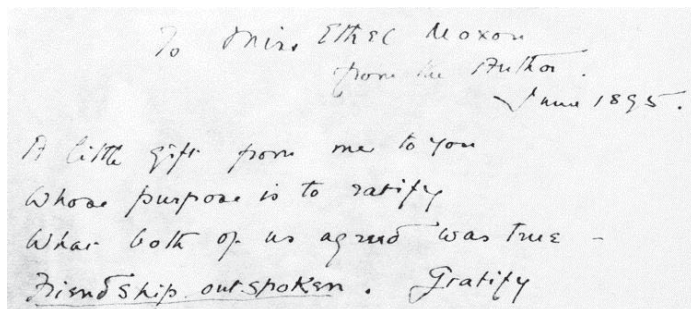 To Miss Ethel Moxon
from the Author.
June 1895.
A little gift from me to you
Whose purpose is to ratify
What both of us agreed was true –
Friendship outspoken. Gratify